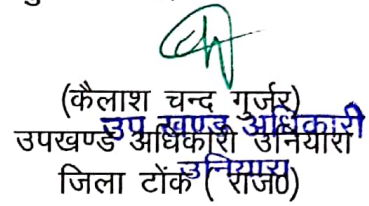 (कैलाश चन्द गुर्जर)
उप खण्ड अधिकारी
उपखण्ड अधिकारी उनियारा
उनियारा
जिला टोंक ( राज0)